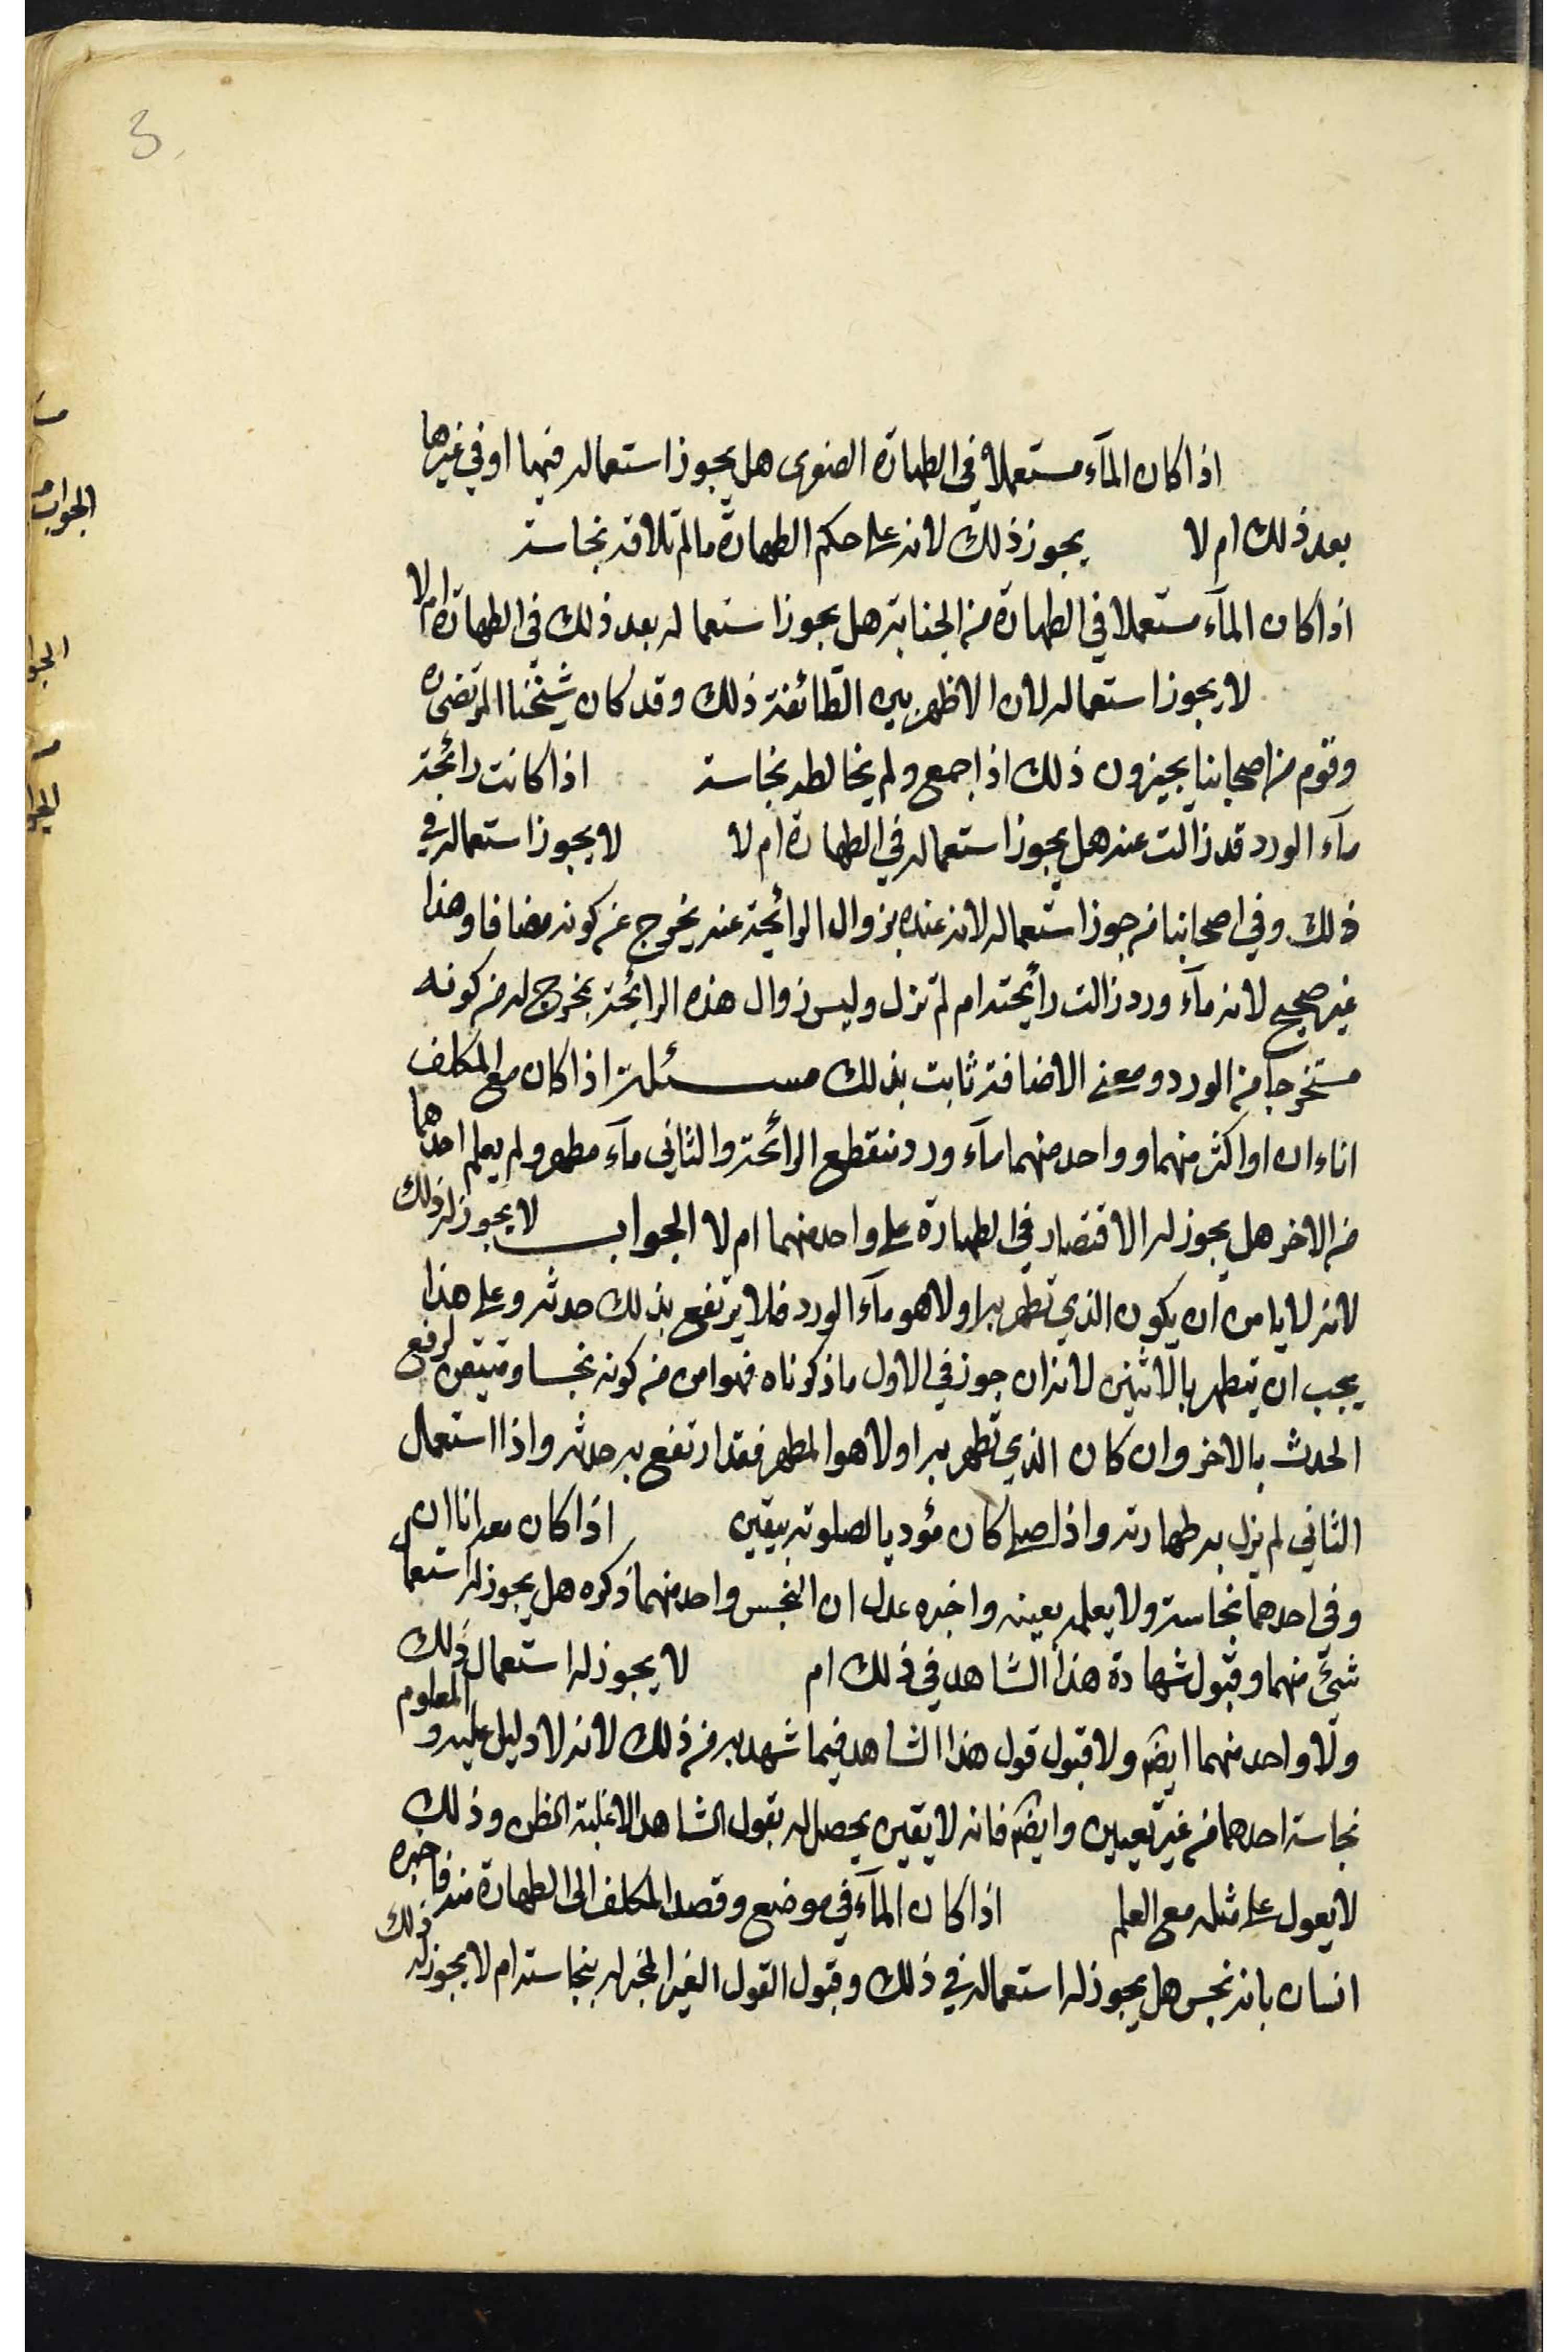 3
اذا كان المآء مستعملا في الطهارة الصغرى هل يجوز استعماله فيها او في غيرها
بعد ذلك ام لا يجوز ذلك لانه على حكم الطهارة ما لم تلاقه نجاسة
اذا كان المآء مستعملا في الطهارة من الجنابة هل يجوز استعماله بعد ذلك في الطهارة ام لا
لا يجوز استعماله لان الاظهر بين الطائفة ذلك وقد كان شيخنا المرتضى ره
وقوم من اصحابنا يجيزون ذلك اذا جمع ولم يخالطه نجاسة اذا كانت رائحة
مآء الورد قد زالت عنه هل يجوز استعماله في الطهارة ام لا لا يجوز استعماله في
ذلك وفي اصحابنا من جوز استعماله لانه عنده بزوال الرائحة عنه يخرج عن كونه مضافا وهذا
غير صحيح لانه مآء ورد زالت رائحته ام لم تزل وليس زوال هذه الرائحة بمخرج له من كونه
مستخرجا من الورد ومعنى الاضافة ثابت بذلك مسئلة اذا كان مع المكلف
اناءان او اكثر منهما وواحد منهما مآء ورد منقطع الرائحة والثاني مآء مطهر ولم يعلم احدهما
من الاخر هل يجوز له الاقتصار في الطهارة على واحد منهما ام لا الجواب لا يجوز له ذلك
لانه لا يامن ان يكون الذي تطهر به اولا هو مآء الورد فلا يرتفع بذلك حدثه وعلى هذا
يجب ان يتطهر بالاثنين لانه ان جوز في الاول ما ذكرناه فهو امن من كونه نجسا ومتيقن لرفع
الحدث بالاخر وان كان الذي تطهر به اولا هو المطهر فقد ارتفع به حدثه واذا استعمال
الثاني لم يزل به طهارته واذا صلى كان مؤديا لصلوته بيقين اذا كان معه اناان
وفي احدهما نجاسة ولا يعلمه بعينه واخبره عدل ان النجس واحد منهما ذكره هل يجوز له استعما
شئ منهما وقبول شهادة هذا الشاهد في ذلك ام لا يجوز له استعمال ذلك
ولا واحد منهما ايضم ولا قبول قول هذا الشاهد فيما شهد به من ذلك لانه لا دليل عليه و المعلوم
نجاسة احدهما من غير تعيين وايضم فانه لا يقين يحصل له بقول الشاهد الا غلبة الظن وذلك
لا يعول على مثله مع العلم اذا كان المآء في موضع وقصد المكلف الى الطهارة منه فاخبره
انسان بانه نجس هل يجوز له استعماله في ذلك وقبول القول الغير المخبر له بنجاسته ام لا يجوز له ذلك